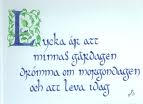 Lycka är att
minnas gårdagen
drömma om morgondagen
och att leva idag